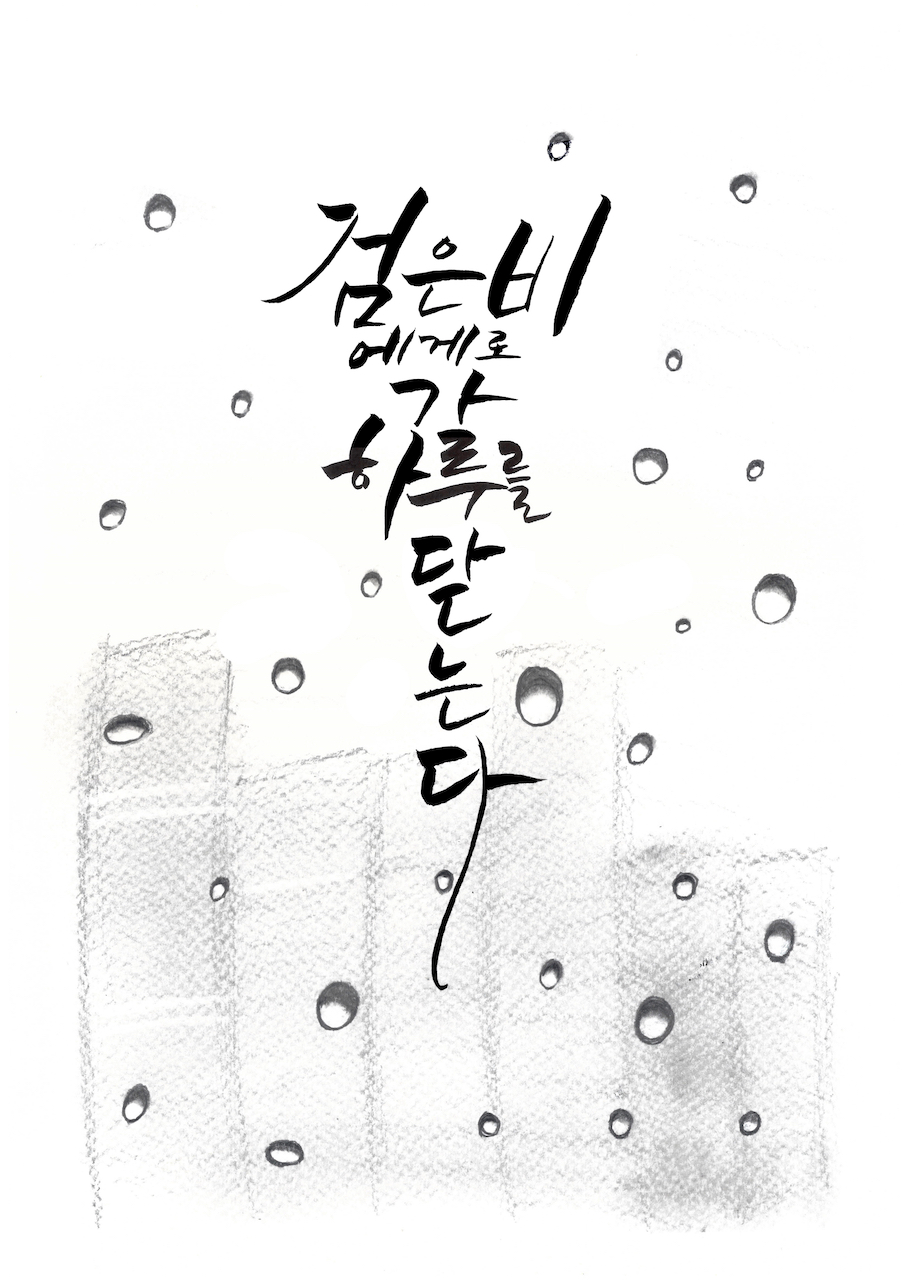 검은비
에게로
가
하루를
닫
는
다